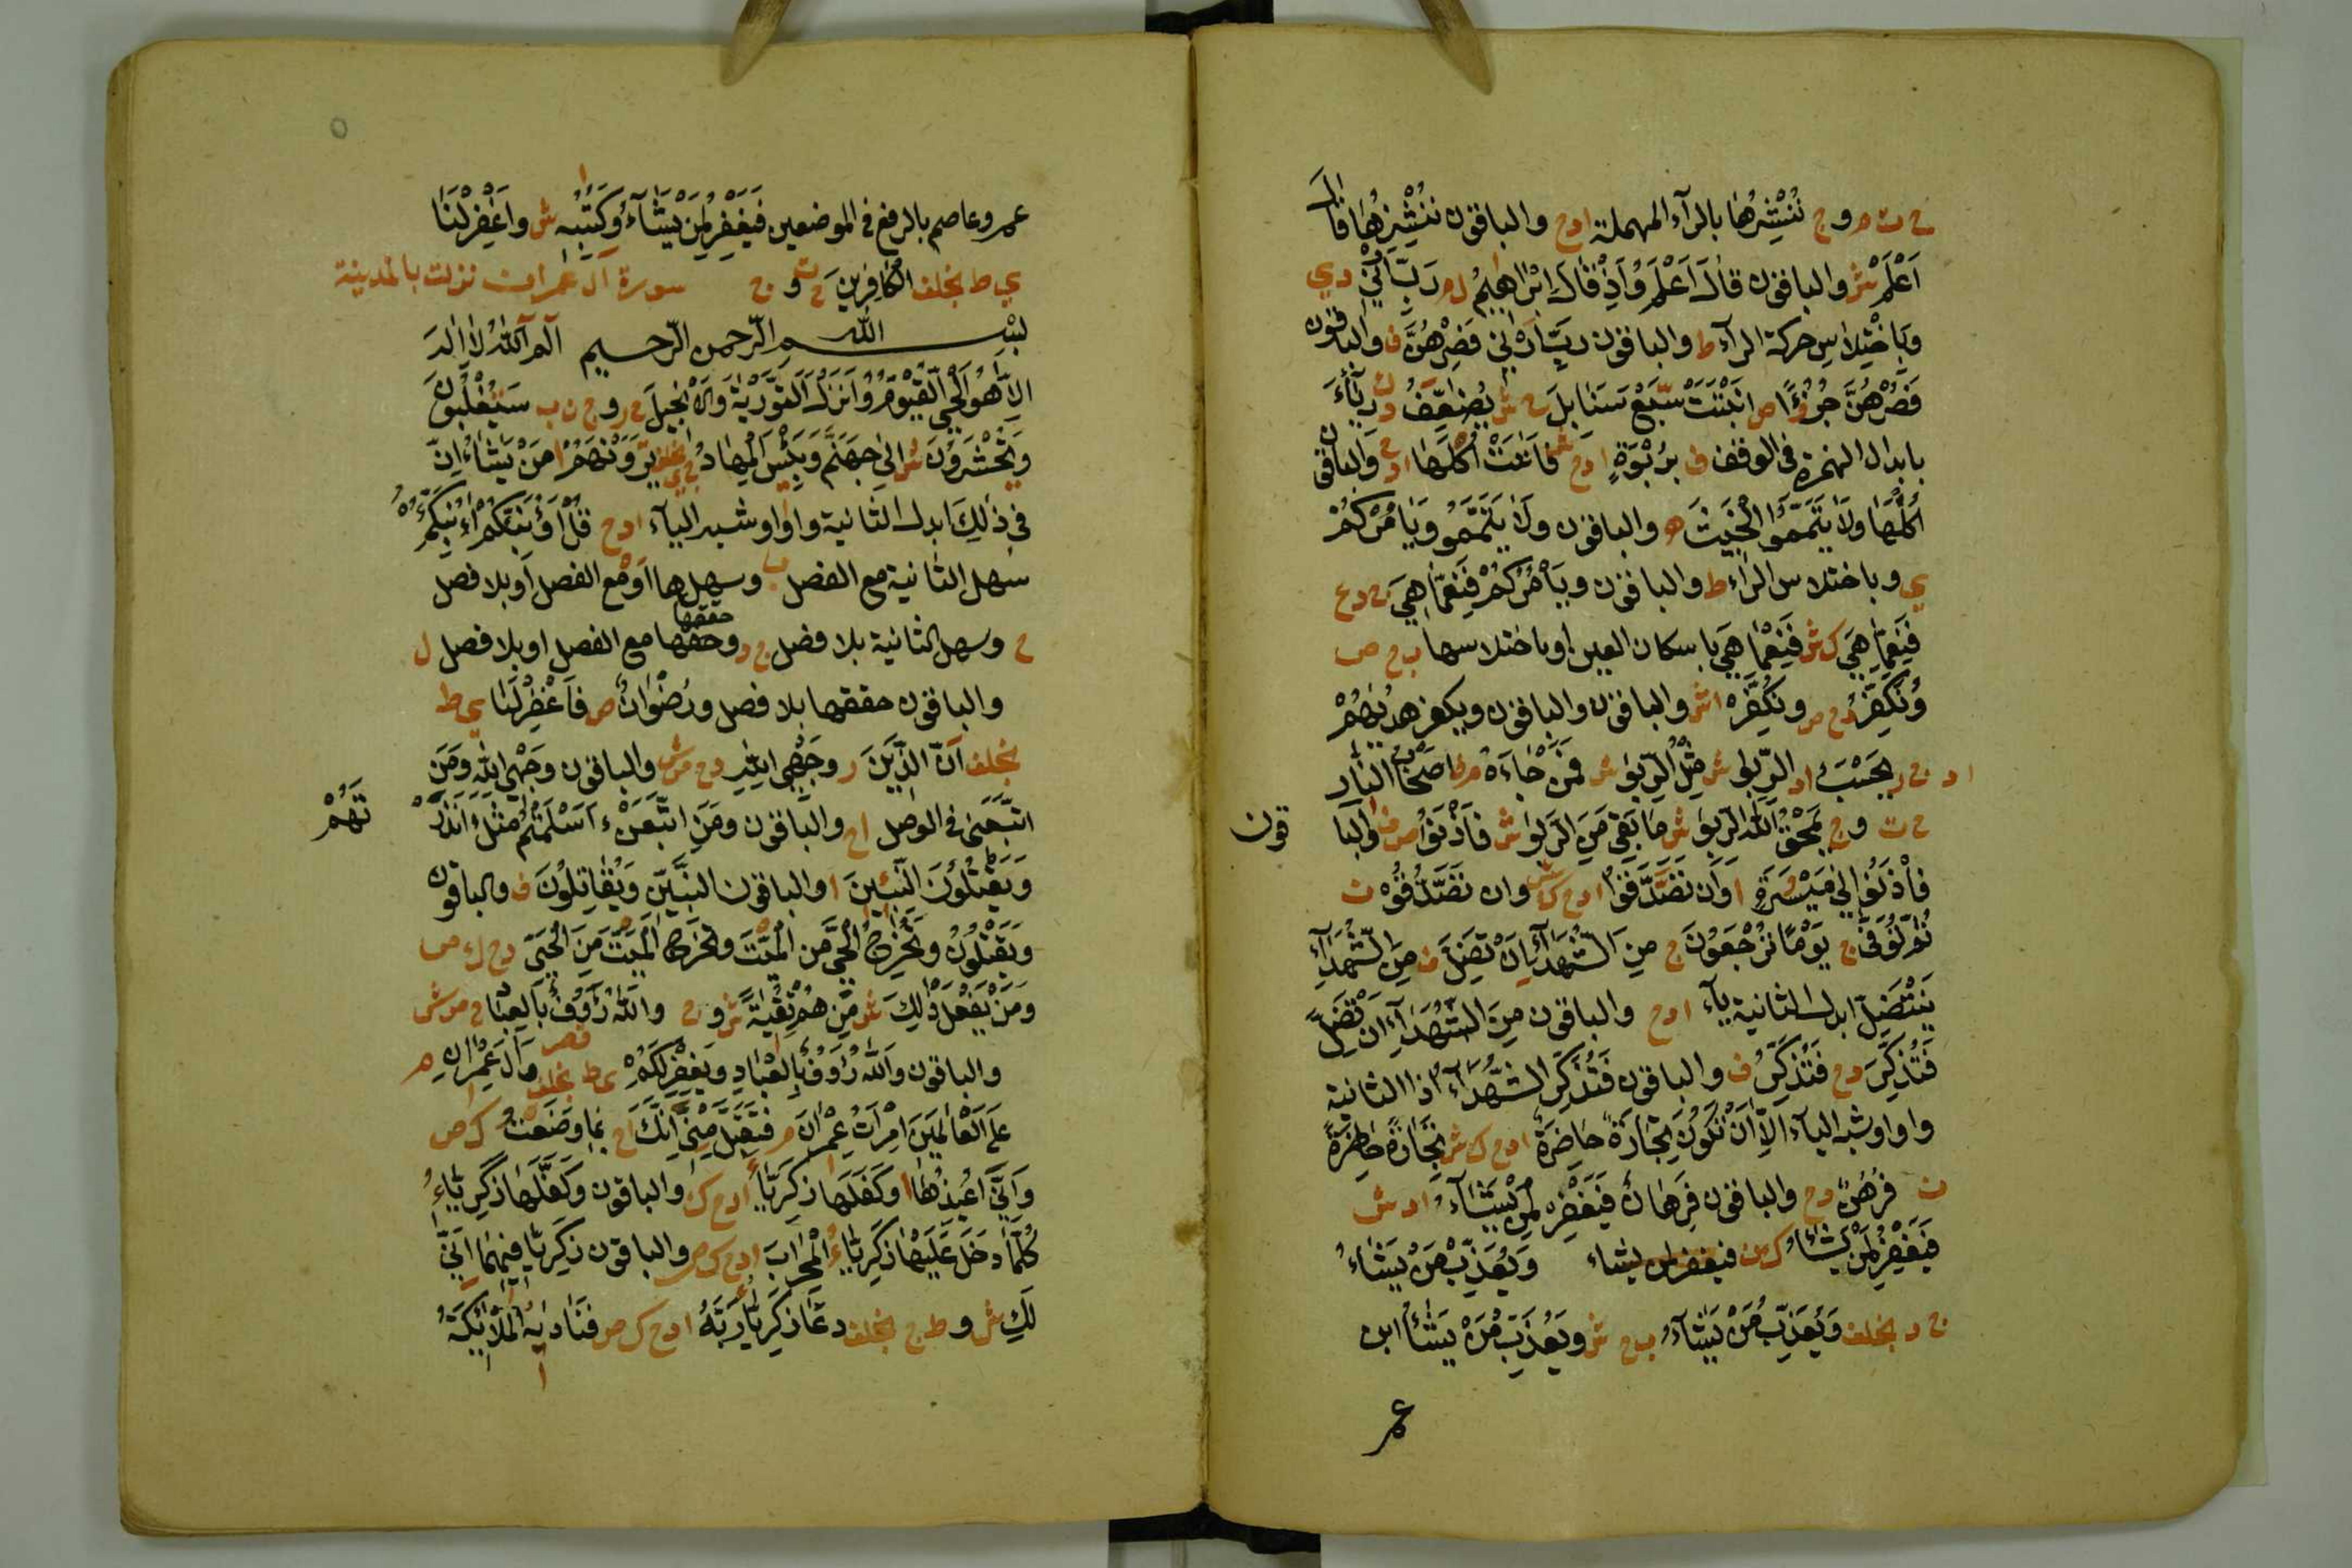 ح ت م وج نُنْشِرُهَا بالرآء المهملة ادح والباقون نُنْشِزُهَا قال
اَعْلَمْ ش والباقون قالَ اَعْلَمُ وَاِذْ قالَ اِبْرٰاهٖيمُ ل م رَبِّ اَرْنٖي دي
وبِاخْتِلاسِ حركة الرآء ط والباقون رَبِّ اَرِنٖي فَصِرْهُنَّ ف والباقون
فَصُرْهُنَّ جُزُءًا ص انبتت سَّبْعَ سَنَابِلَ ح ش يُضَعِّفُ دك رِئآءَ
بابدال الهمزة في الوقف ف بِرُبْوَةٍ ادح ش فَاٰتَتْ اُكْلَهَا ادح والباقون
اُكُلَهَا وَلَا تَّيَمَّمُوا الْخَبٖيثَ ه والباقون ولَا تَيَمَّمُو وَيَامُرْكُمْ
ي وباختلاس الراء ط والباقون ويَأْمُرُكُمْ فَنِعِمَّا هِيَ ج دع
فَنَعِمَّا هِيَ ك ش فَنِعْمَّا هِيَ باسكان العين اوباختلاسها ب ح ص
وَنُكَفِّرُ دح ص ونُكَفِّرْ اش والباقون والباقون ويكفر هديٰهُمْ
اد ن ر يَحْسِبُ اد الرِّبٰوا ش مِثْلُ الرِّبٰوا ش فَمَنْ جَاءَهُ م ف اَصْحَابُ النَّار
ح ت وج يَمْحَقُ اللّٰهُ الرِّبٰوا ش مَا بَقِيَ مِنَ الرِّبٰوا ش فَاٰذِنُوا ص ف والبا
قون
فأْذَنُوا اِلٰي مَيْسُرَةٍ ا وَاَن تَصَّدَّقُوا ادح ك ش وان تَصَدَّقُوا ن
تُوَفّٰي ج يَوْمًا تَرْجِعُونَ ح مِنَ الشُّهَدَآءِ اِنْ تَضِلَّ ف مِنَ الشُّهَدَآءِ
يَنْ تَضِلَّ ابدل الثانية يآء ادح والباقون مِنَ الشُّهَدَآءِ اَن تَضِلَّ
فَتُذْكِرَ دح فَتُذَكِّرُ ف والباقون فَتُذَكِّرَ الشُّهَدَآءُ اذا الثانية
واوا وشبه اليآء اِلَّا اَنْ تَكُونَ تِجَارَةٌ حَاضِرَةٌ ادح ك ش تِجَارَةً حَاضِرَةً
ن فَرُهُنٌ دح والباقون فَرِهَانٌ فَيَغْفِرْ لِمَنْ يَشَآءُ اد ش
فَيَغْفِرُ لِمَنْ يَشَآءُ ك ن فيغفر لمن يشاء وَيُعَذِّبْ مَنْ يَشَاءُ
ج د بخلف وَيُعَذِّب مَّنْ يَشَآءُ ب ح ش ويُعَذِّبُ مَنْ يَشَآءُ ابن
عمر
عمرو عاصم بالرفع في الموضعين فَيَغْفِرْ لِمَنْ يَشَآءُ وَكِتَابِهٖ ش واغْفِرْ لَنَا
ي ط بخلف الْكَافِرِينَ ح ت وج سورة آل عمران نزلت بالمدينة
بسم اللّٰه الرّحمن الرّحيم الٓمٓ اَللّٰهُ لَا اِلٰهَ
اِلَّا هُوَ الْحَيُّ الْقَيُّومُ وَاَنْزَلَ التَّوْرٰيةَ وَالْاِنْجٖيلَ ح ر وج ن ب سَيُغْلَبُونَ
وَيُحْشَرُونَ ش اِلٰي جَهَنَّمَ وَبِئْسَ الْمِهَادُ ج ي بخلف تَرَوْنَهُمْ ا مَنْ يَشَاءُ اِنَّ
فِي ذٰلِكَ ابدل الثانية واوا وشبه اليآء ادح قُلْ اَؤُنَبِّئُكُمْ
سهل الثانية مع الفصل ب وسهلها اومع الفصل اوبلا فصل
ح وسهل الثانية بلا فصل ج د وحققها مع الفصل اوبلا فصل ل
حققها
والباقون حققها بلا فصل ورُضْوَانٌ ص فَاغْفِرْ لَنَا ي ط
بخلف اَنَّ الدّٖينَ ر وجْهِي لِلّٰهِ دح م ش والباقون وَجْهِيَ لِلّٰهِ وَمَنِ
اتَّبَعَنٖي في الوصل اح والباقون وَمَنِ اتَّبَعَنِ ءَاَسْلَمْتُمْ مثل ءَاَنْذَرْ
تَهُمْ
وَيَقْتُلُونَ النَّبٖيئٖينَ ا والباقون النبيّٖينَ وَيُقَاتِلُونَ ف والباقون
وَيَقْتُلُونَ وتُخْرِجُ الْحَيَّ مِنَ الْمَيْتِ وتُخْرِجُ الْمَيْتَ مِنَ الْحَيِّ دح ك ص
وَمَنْ يَفْعَلْ ذٰلِكَ ش مِنْهُمْ تُقٰيةً ش وج واللّٰهُ رَؤُفٌ بِالْعِبَادِ ح م ش
والباقون وَاللّٰهُ رَؤُفٌ بِالْعِبَادِ وَيَغْفِرْ لَكُمْ ي ط بخلف وَاٰلَ عِمْرٰانَ م
عَلَي الْعَالَمٖينَ امْرَاَتُ عِمْرٰانَ م فَتَقَبَّلْ مِنّٖي اِنَّكَ اح بِمَا وَضَعْتُ ك ص
وَاِنّٖيَ اُعٖيذُهَا ا وَكَفَلَهَا زَكَرِيَّآءُ ادح ك والباقون وَكَفَّلَهَا زَكَرِيَّآءَ
كُلَّمَا دَخَلَ عَلَيْهَا زَكَرِيَّآءُ الْمِحْرَابَ ادح ك ص والباقون زَكَرِيَّا فيهما اَنّٰي
لَكِ ش وط ج بخلف دَعَا زَكَرِيَّآءُ رَبَّهُ ادح ك ص فَنَادٰيهُ الْمَلٰٓئِكَةُ